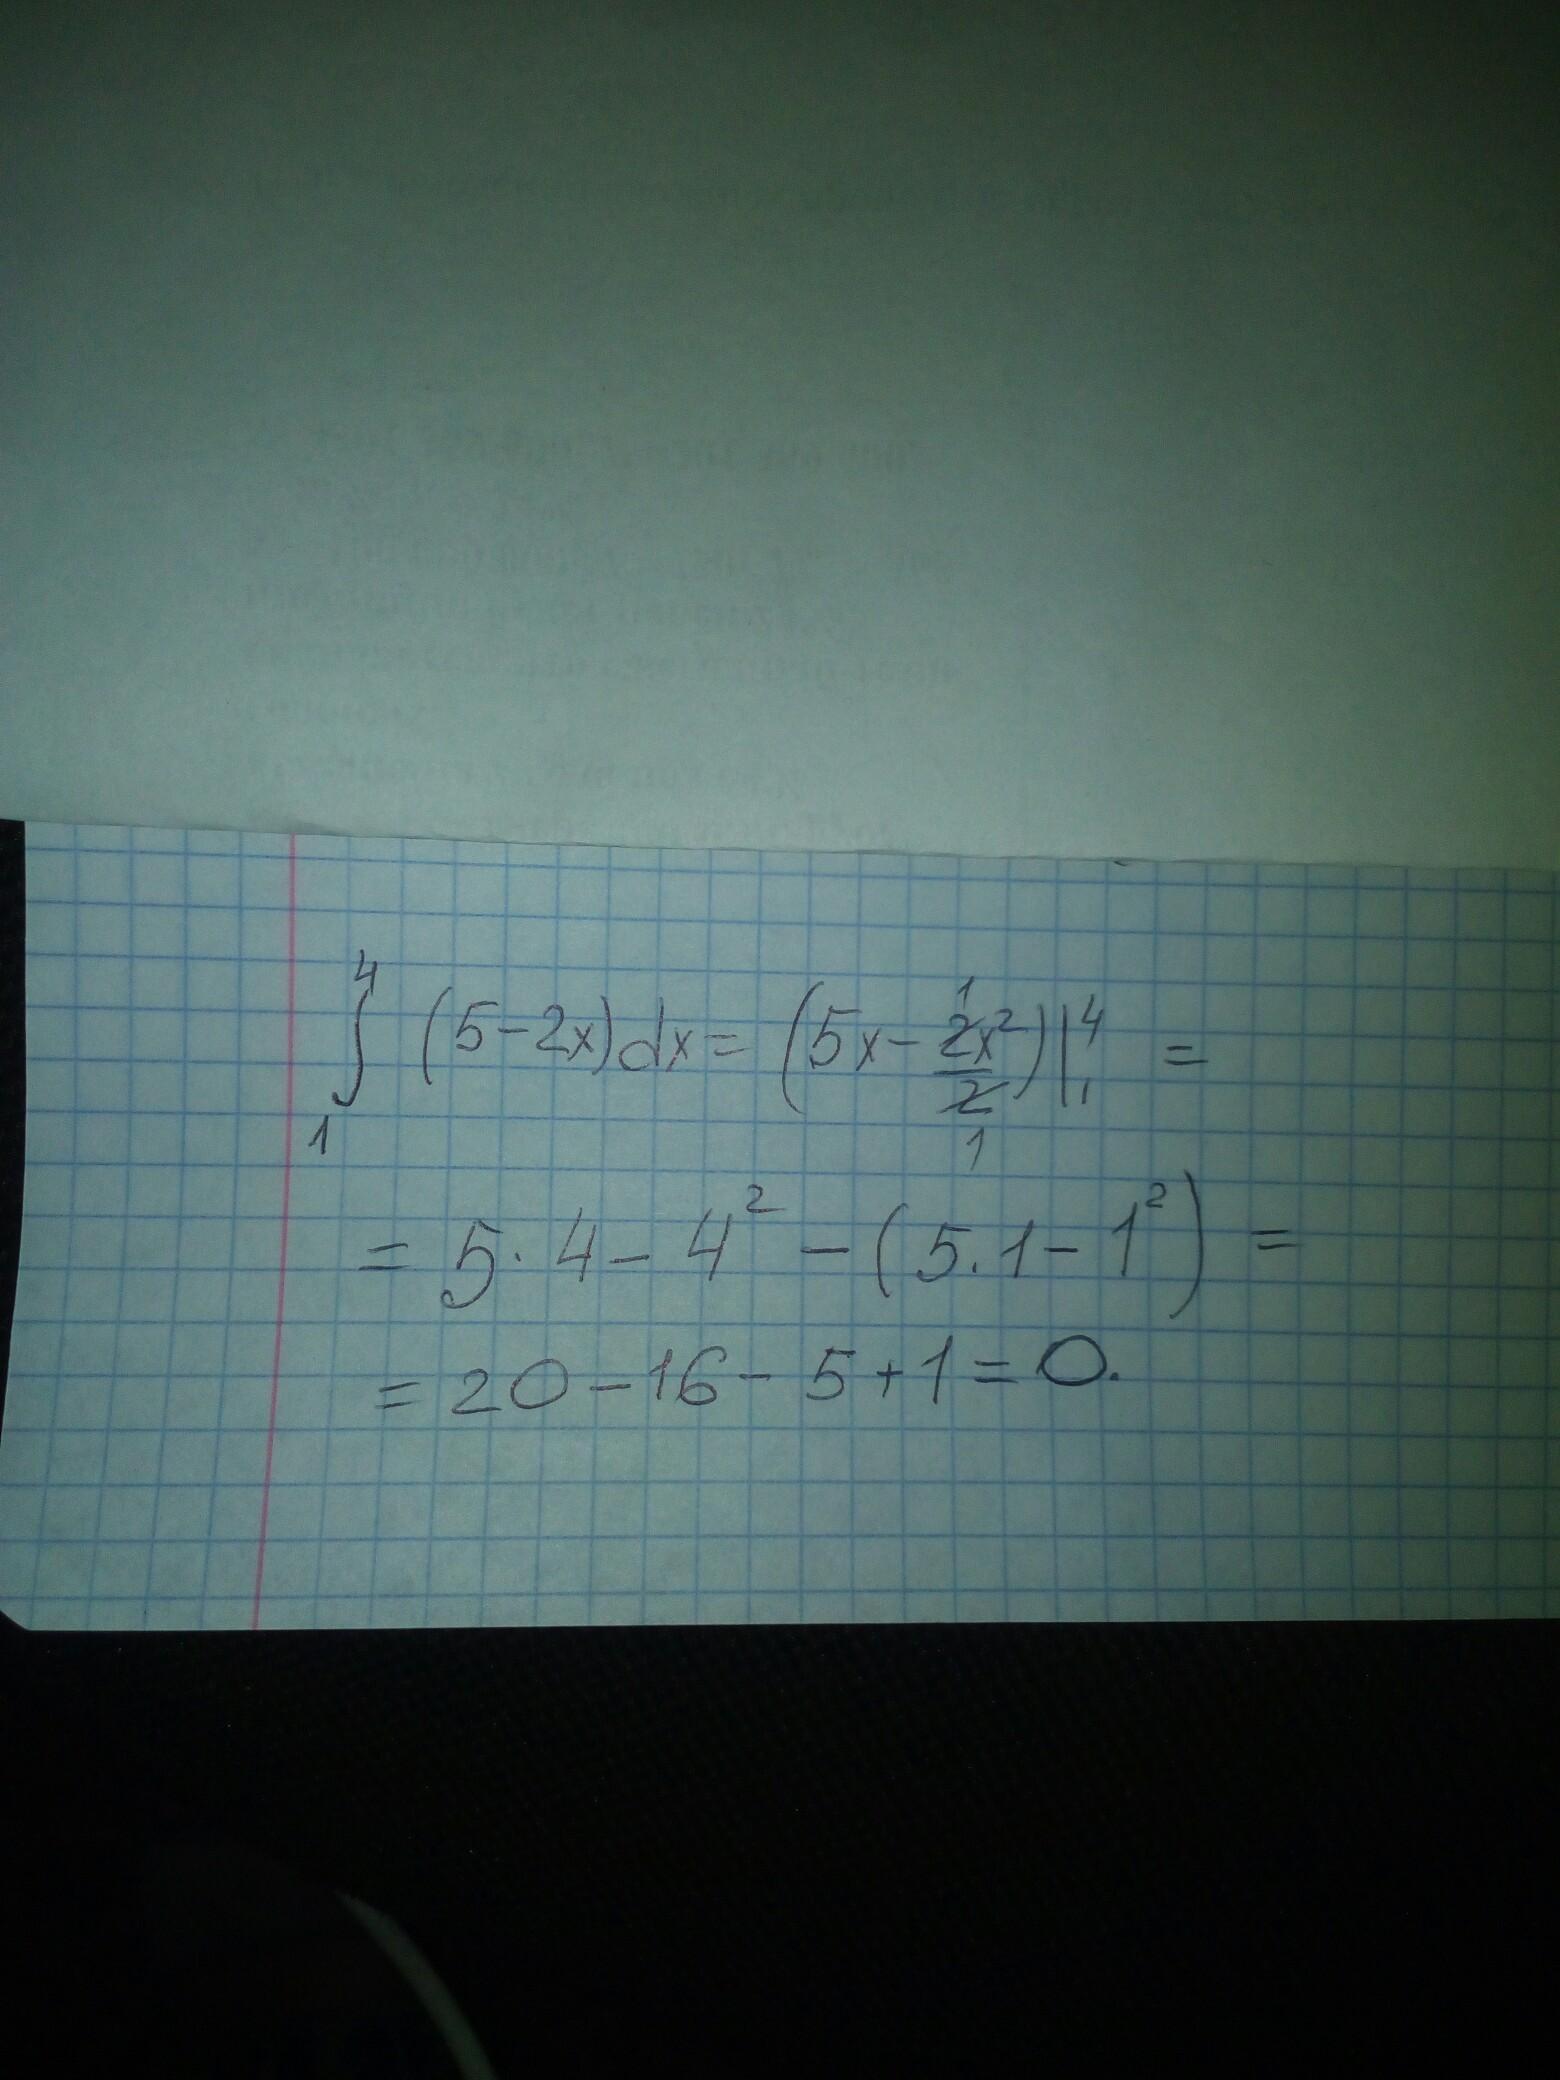 ∫₁⁴ (5-2x)dx = (5x - 2x²/2)|₁⁴ =
= 5·4 - 4² - (5·1 - 1²) =
= 20 - 16 - 5 + 1 = 0.